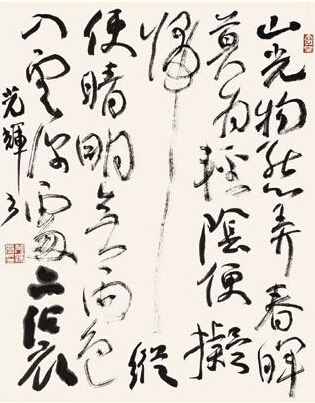 山光物態弄春暉
莫為輕陰便擬
歸縱
使晴明無雨色
入雲深處亦沾衣
光輝